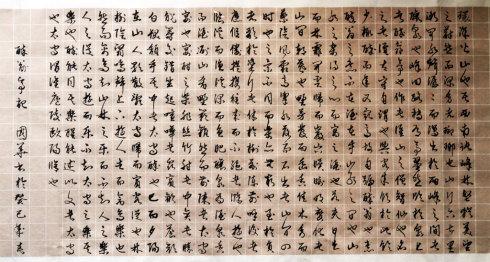 環滁皆山也其西南諸峰林壑尤美望
之蔚然而深秀者琅琊也山行六七里
漸聞水聲潺潺而瀉出於兩峰之間者
釀泉也峰回路轉有亭翼然臨於泉上
者醉翁亭也作亭者誰山之僧智仙也名
之者誰太守自謂也太守與客來飲於此
飲少輒醉而年又最高故自號曰醉翁也
醉翁之意不在酒在乎山水之間也山
水之樂得之心而寓之酒也若夫日出
而林霏開雲歸而岩穴暝晦明變化者
山間之朝暮也野芳發而幽香佳木秀而
繁陰風霜高潔水落而石出者山間之四
時也朝而往暮而歸四時之景不同而
樂亦無窮也至於負者歌於途行者休於樹
前者呼後者應傴僂提攜往來而不絕者滁人遊也
臨溪而漁溪深而魚肥釀泉為酒泉香
而酒洌山肴野蔌雜然而前陳者太守
宴也宴酣之樂非絲非竹射者中弈者勝
觥籌交錯起坐而喧嘩者眾賓歡也蒼顏
白髮頹然乎其間者太守醉也已而夕陽
在山人影散亂太守歸而賓客從也
樹林陰翳鳴聲上下遊人去而禽鳥樂也
然而禽鳥知山林之樂而不知人之樂
人知從太守遊而樂而不知太守之樂其
樂也醉能同其樂醒能述以文者太守
也太守謂誰廬陵歐陽修也
醉翁亭記 書於癸巳年春